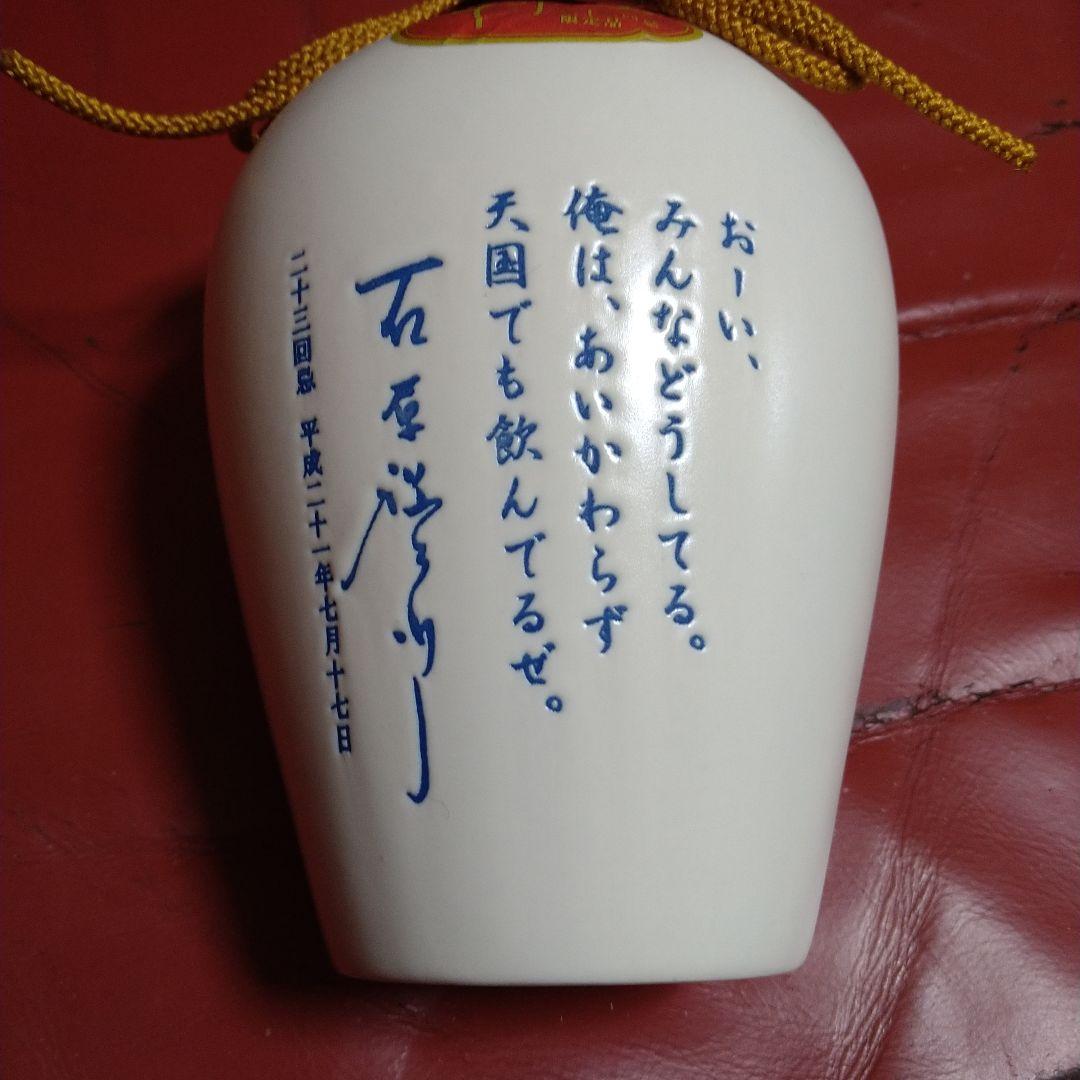 限定品
おーい、
みんなどうしてる。
俺は、あいかわらず
天国でも飲んでるぜ。
石原裕次郎
二十三回忌 平成二十一年七月十七日